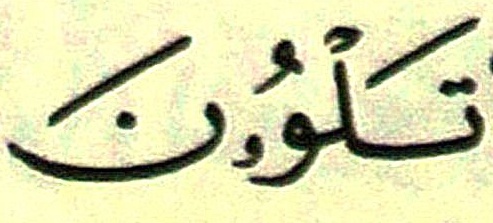 تَلْوُۥنَ